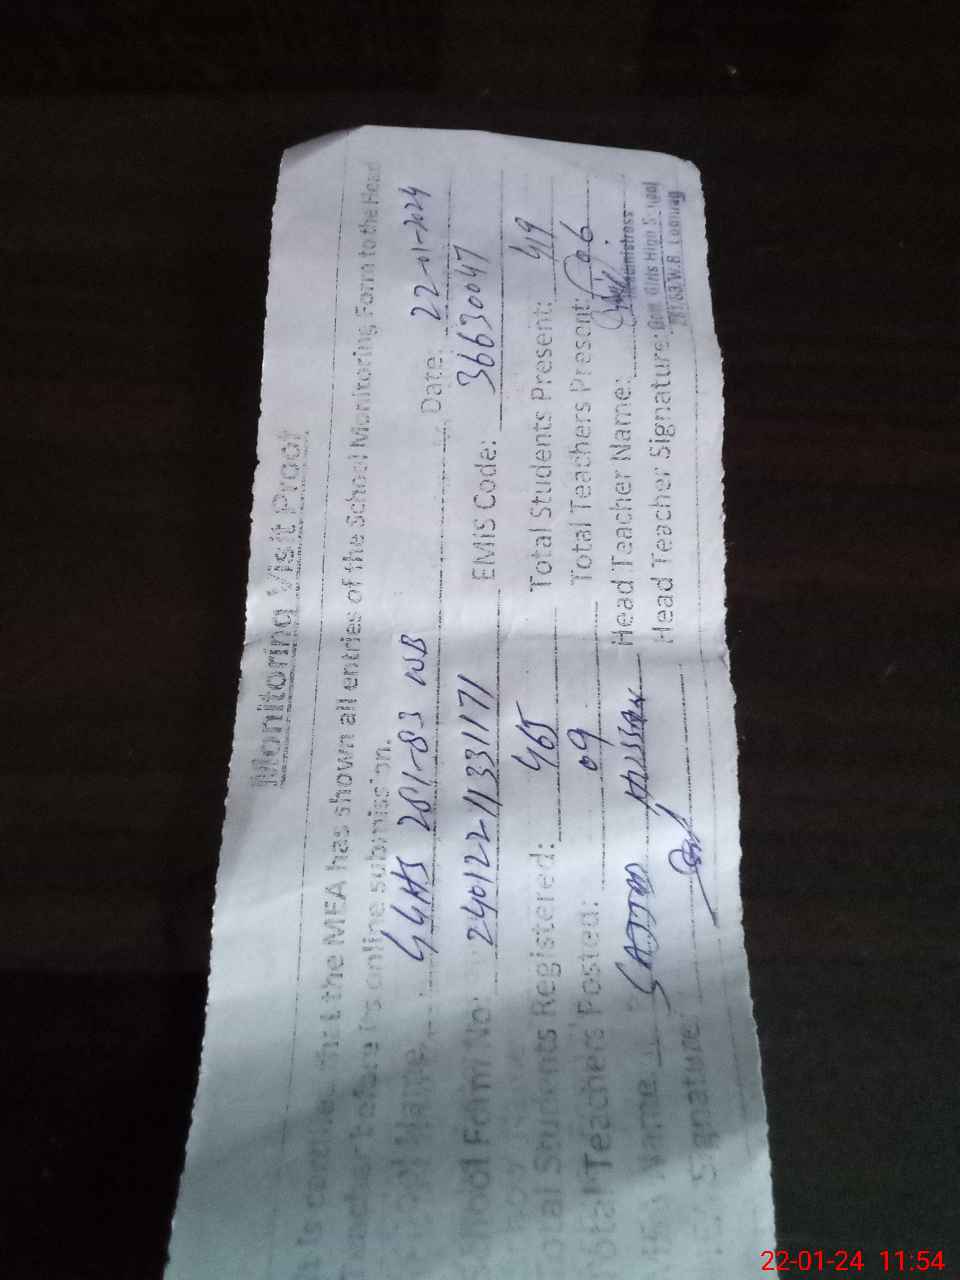 Monitoring Visit Proof
that the MEA has shown all entries of the School Monitoring Form to the Head
before its online submission.
School Name GGHS 281-83 WB Date: 22-01-2024
School Form No: 240122-11331171 EMIS Code: 36630047
Total Students Registered: 465 Total Students Present: 419
Total Teachers Posted: 09 Total Teachers Present: 06
Name SAJJAD HUSSAN Head Teacher Name:
Signature Head Teacher Signature:
Headmistress
Govt. Girls High School
281/83 W.B. Lodhran
22-01-24 11:54